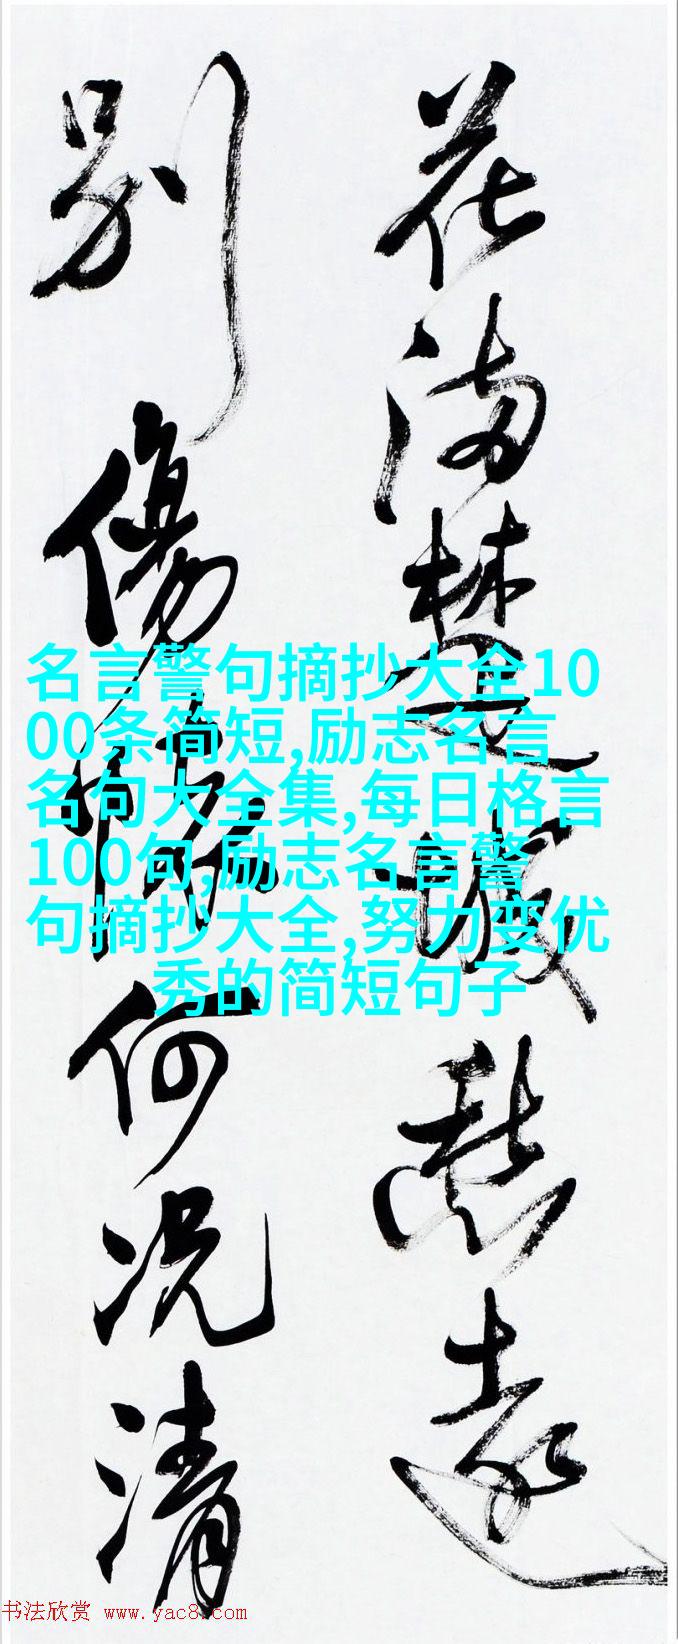 花满楚城愁遠
别傷懷何况清
名言警句摘抄大全10
00条简短,励志名言
名句大全集,每日格言
100句,励志名言警
句摘抄大全,努力变优
秀的简短句子
书法欣赏 www.yac8.com